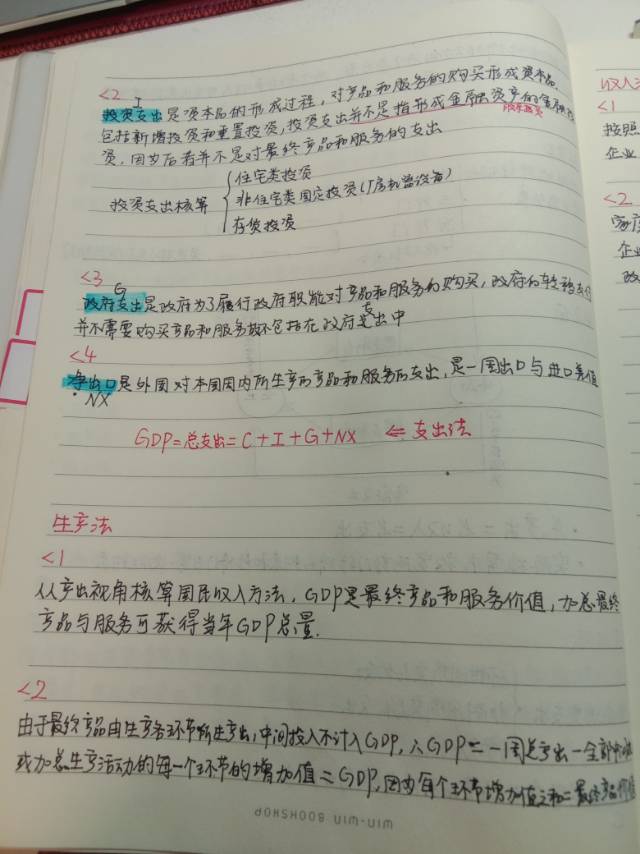 <2 I
投资支出是资本品的形成过程，对产品和服务的购买形成资本品.
包括新增投资和重置投资，投资支出并不是指形成金融资产的金融投
资，因为后者并不是对最终产品和服务的支出
投资支出核算
住宅类投资
非住宅类固定投资(厂房机器设备)
存货投资
<3 G
政府支出是政府为了履行政府职能对产品和服务的购买，政府的转移支付
并不需要购买产品和服务故不包括在政府支出中
<4
净出口是外国对本国国内所生产的产品和服务的支出，是一国出口与进口差值
NX
GDP=总支出=C+I+G+NX ⇐ 支出法
生产法
<1
从产出视角核算国民收入方法，GDP是最终产品和服务价值，加总最终
产品与服务可获得当年GDP总量.
<2
由于最终产品由生产各环节所生产出，中间投入不计入GDP，∴GDP=一国总产出-全部中
或加总生产活动的每一个环节的增加值=GDP，因为每个环节增加值之和=最终产品价值
WIN-WIN BOOKSHOP
收入法
<1
按照
企业
<2
企业
政